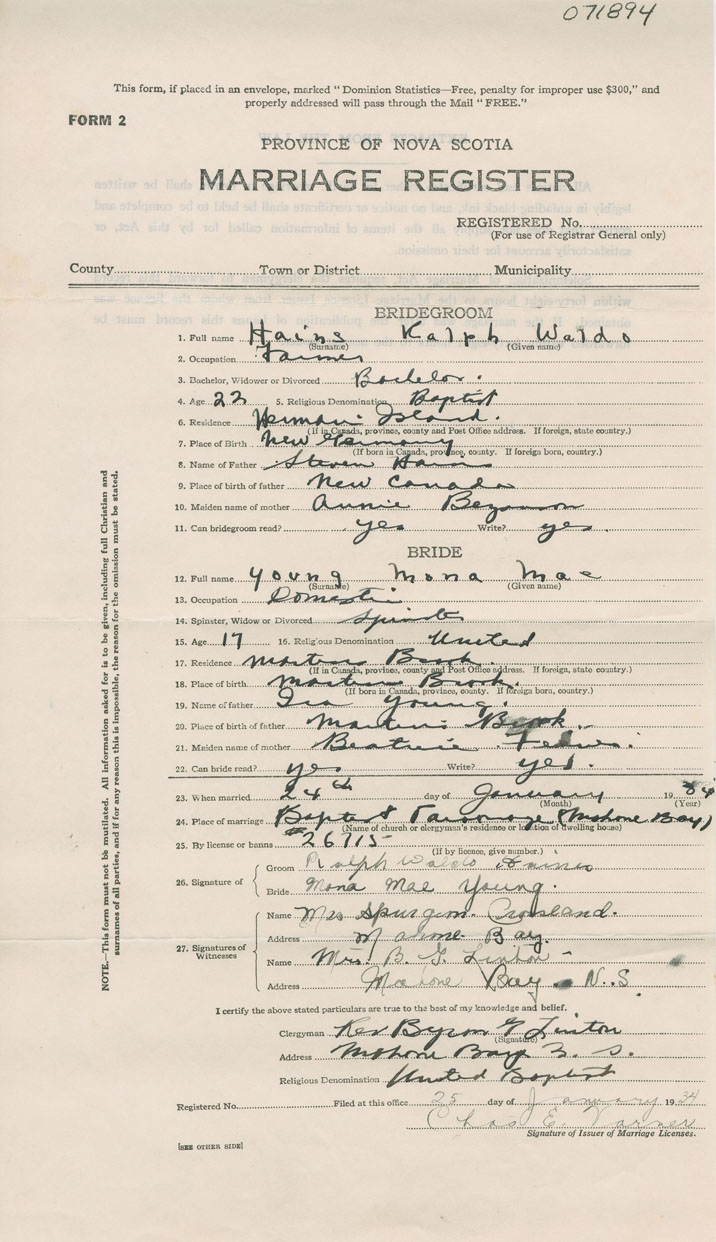 071894
This form, if placed in an envelope, marked "Dominion Statistics—Free, penalty for improper use $300," and
properly addressed will pass through the Mail "FREE."
FORM 2
PROVINCE OF NOVA SCOTIA
MARRIAGE REGISTER
REGISTERED No.
(For use of Registrar General only)
County Town or District Municipality
BRIDEGROOM
1. Full name Hains Ralph Waldo
(Surname) (Given name)
2. Occupation Farmer
3. Bachelor, Widower or Divorced Bachelor.
4. Age 22 5. Religious Denomination Baptist
6. Residence Herman's Island.
(If in Canada, province, county and Post Office address. If foreign, state country.)
7. Place of Birth New Germany
(If born in Canada, province, county. If foreign born, country.)
8. Name of Father Steven Hains
9. Place of birth of father New Canada
10. Maiden name of mother Annie Bezanson
11. Can bridegroom read? yes Write? yes
BRIDE
12. Full name Young Mona Mae
(Surname) (Given name)
13. Occupation Domestic
14. Spinster, Widow or Divorced Spinster
15. Age 17 16. Religious Denomination United
17. Residence Martins Brook.
(If in Canada, province, county and Post Office address. If foreign, state country.)
18. Place of birth Martins Brook.
(If born in Canada, province, county. If foreign born, country.)
19. Name of father Ira Young.
20. Place of birth of father Martins Brook.
21. Maiden name of mother Beatrice
22. Can bride read? yes Write? yes.
23. When married 24th day of January 1934
(Month) (Year)
24. Place of marriage Baptist Parsonage (Mahone Bay)
(Name of church or clergyman's residence or location of dwelling house)
25. By license or banns #26715-
(If by licence, give number.)
26. Signature of Groom Ralph Waldo Hains
Bride Mona Mae Young.
27. Signatures of Witnesses Name Mrs Spurgeon Crossland.
Address Mahone Bay.
Name Mrs. B. G. Linton -
Address Mahone Bay N.S.
I certify the above stated particulars are true to the best of my knowledge and belief.
Clergyman Rev Byron G Linton
(Signature)
Address Mahone Bay N. S.
Religious Denomination United Baptist
Registered No. Filed at this office 25 day of January 1934
Chas E. Varner
Signature of Issuer of Marriage Licenses.
[SEE OTHER SIDE]
NOTE.—This form must not be mutilated. All information asked for is to be given, including full Christian and
surnames of all parties, and if for any reason this is impossible, the reason for the omission must be stated.